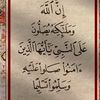 إِنَّ اللَّهَ
وَمَلَائِكَتَهُ يُصَلُّونَ
عَلَى النَّبِيِّ يَا أَيُّهَا الَّذِينَ
آمَنُوا صَلُّوا عَلَيْهِ
وَسَلِّمُوا تَسْلِيمًا